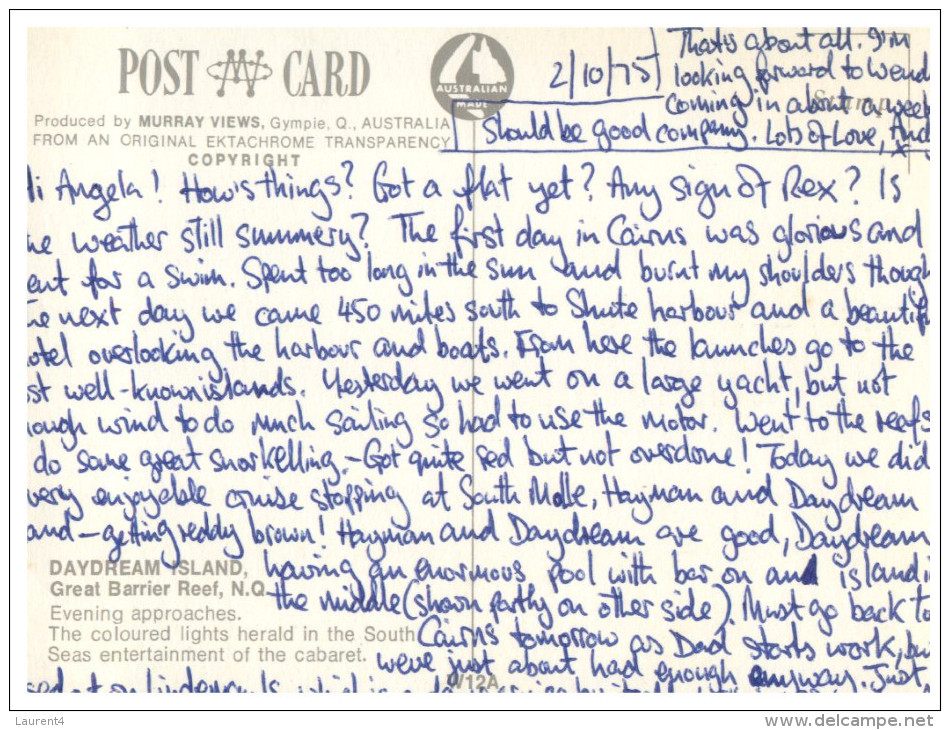 POST CARD
AUSTRALIAN
MADE
Produced by MURRAY VIEWS, Gympie, Q., AUSTRALIA
FROM AN ORIGINAL EKTACHROME TRANSPARENCY
COPYRIGHT
2/10/75
That's about all. I'm
looking forward to Wend
coming in about a week
Should be good company. Lots of Love, And
x
Hi Angela! How's things? Got a flat yet? Any sign of Rex? Is
he weather still summery? The first day in Cairns was glorious and
ent for a swim. Spent too long in the sun and burnt my shoulders though
he next day we came 450 miles south to Shute harbour and a beautif
otel overlooking the harbour and boats. From here the launches go to the
st well-known islands. Yesterday we went on a large yacht, but not
ough wind to do much sailing so had to use the motor. Went to the reefs
do some great snorkelling - Got quite red but not overdone! Today we did
very enjoyable cruise stopping at South Molle, Hayman and Daydream
and - getting reddy brown! Hayman and Daydream are good, Daydream
having an enormous pool with bar on an island i
the middle (shown partly on other side). Must go back to
Cairns tomorrow as Dad starts work, bu
we've just about had enough anyway. Just
DAYDREAM ISLAND,
Great Barrier Reef, N.Q.
Evening approaches.
The coloured lights herald in the South
Seas entertainment of the cabaret.
W12A
Laurent4
www.delcampe.net